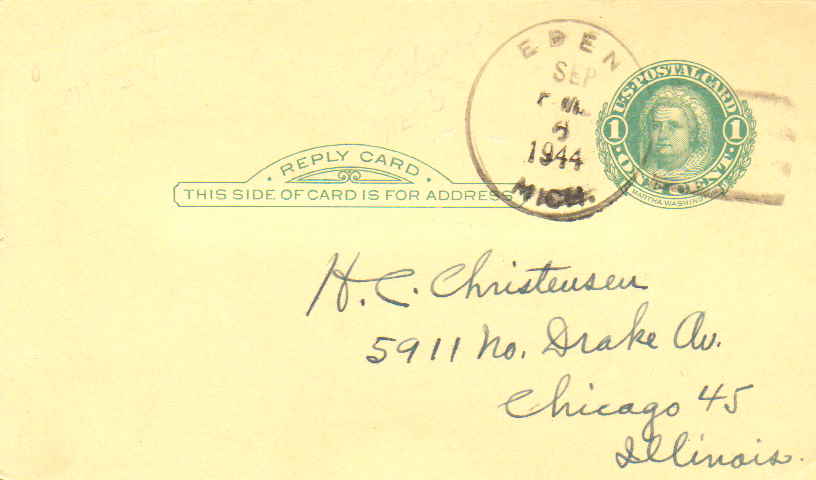 EDEN
SEP
1944
MICH.
U.S. POSTAL CARD
1 1
ONE CENT
MARTHA WASHINGTON
· REPLY CARD ·
THIS SIDE OF CARD IS FOR ADDRESS
H. C. Christensen
5911 No. Drake Av.
Chicago 45
Illinois.